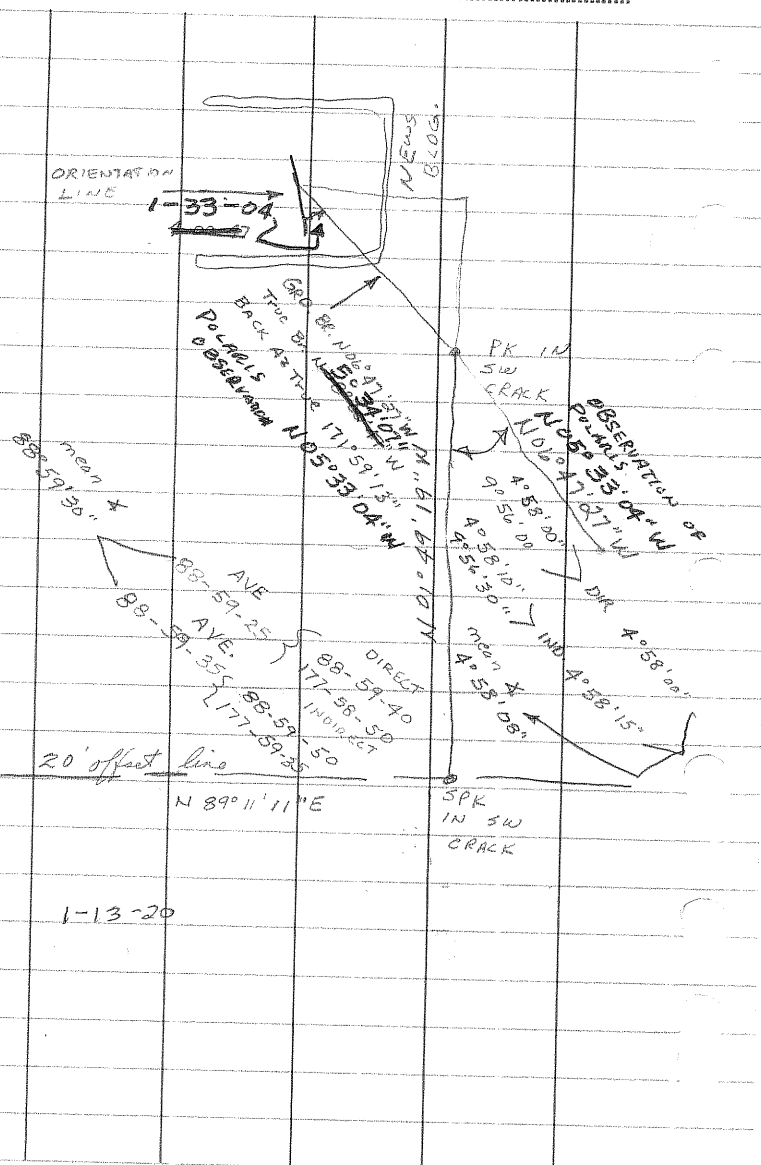 NEWS
BLDG.
ORIENTATION
LINE
1-33-04
GRD BR. N06°47'27"W
TRUE BR. N
5°34'07"
W
BACK AZ TRUE 171°59'13"
POLARIS
OBSERVATION N05°33'04"W
PK IN
SW
CRACK
OBSERVATION OF
POLARIS.
N05°33'04"W
N06°47'27"W
N01°49'19"W
4°58'00"
9°56'00
DIR 4°58'00"
4°58'10"
IND 4°58'15"
mean ∡
4°58'08"
mean ∡
88°59'30"
AVE
88-59-25
AVE.
88-59-35
DIRECT
88-59-40
177-58-50
INDIRECT
88-59-50
177-59-25
20' offset line
N 89°11'11"E
SPK
IN SW
CRACK
1-13-20